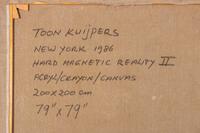 TOON KUIJPERS
NEW YORK 1986
HARD MAGNETIC REALITY II
ACRYL/CRAYON/CANVAS
200x200 cm
79" x 79"